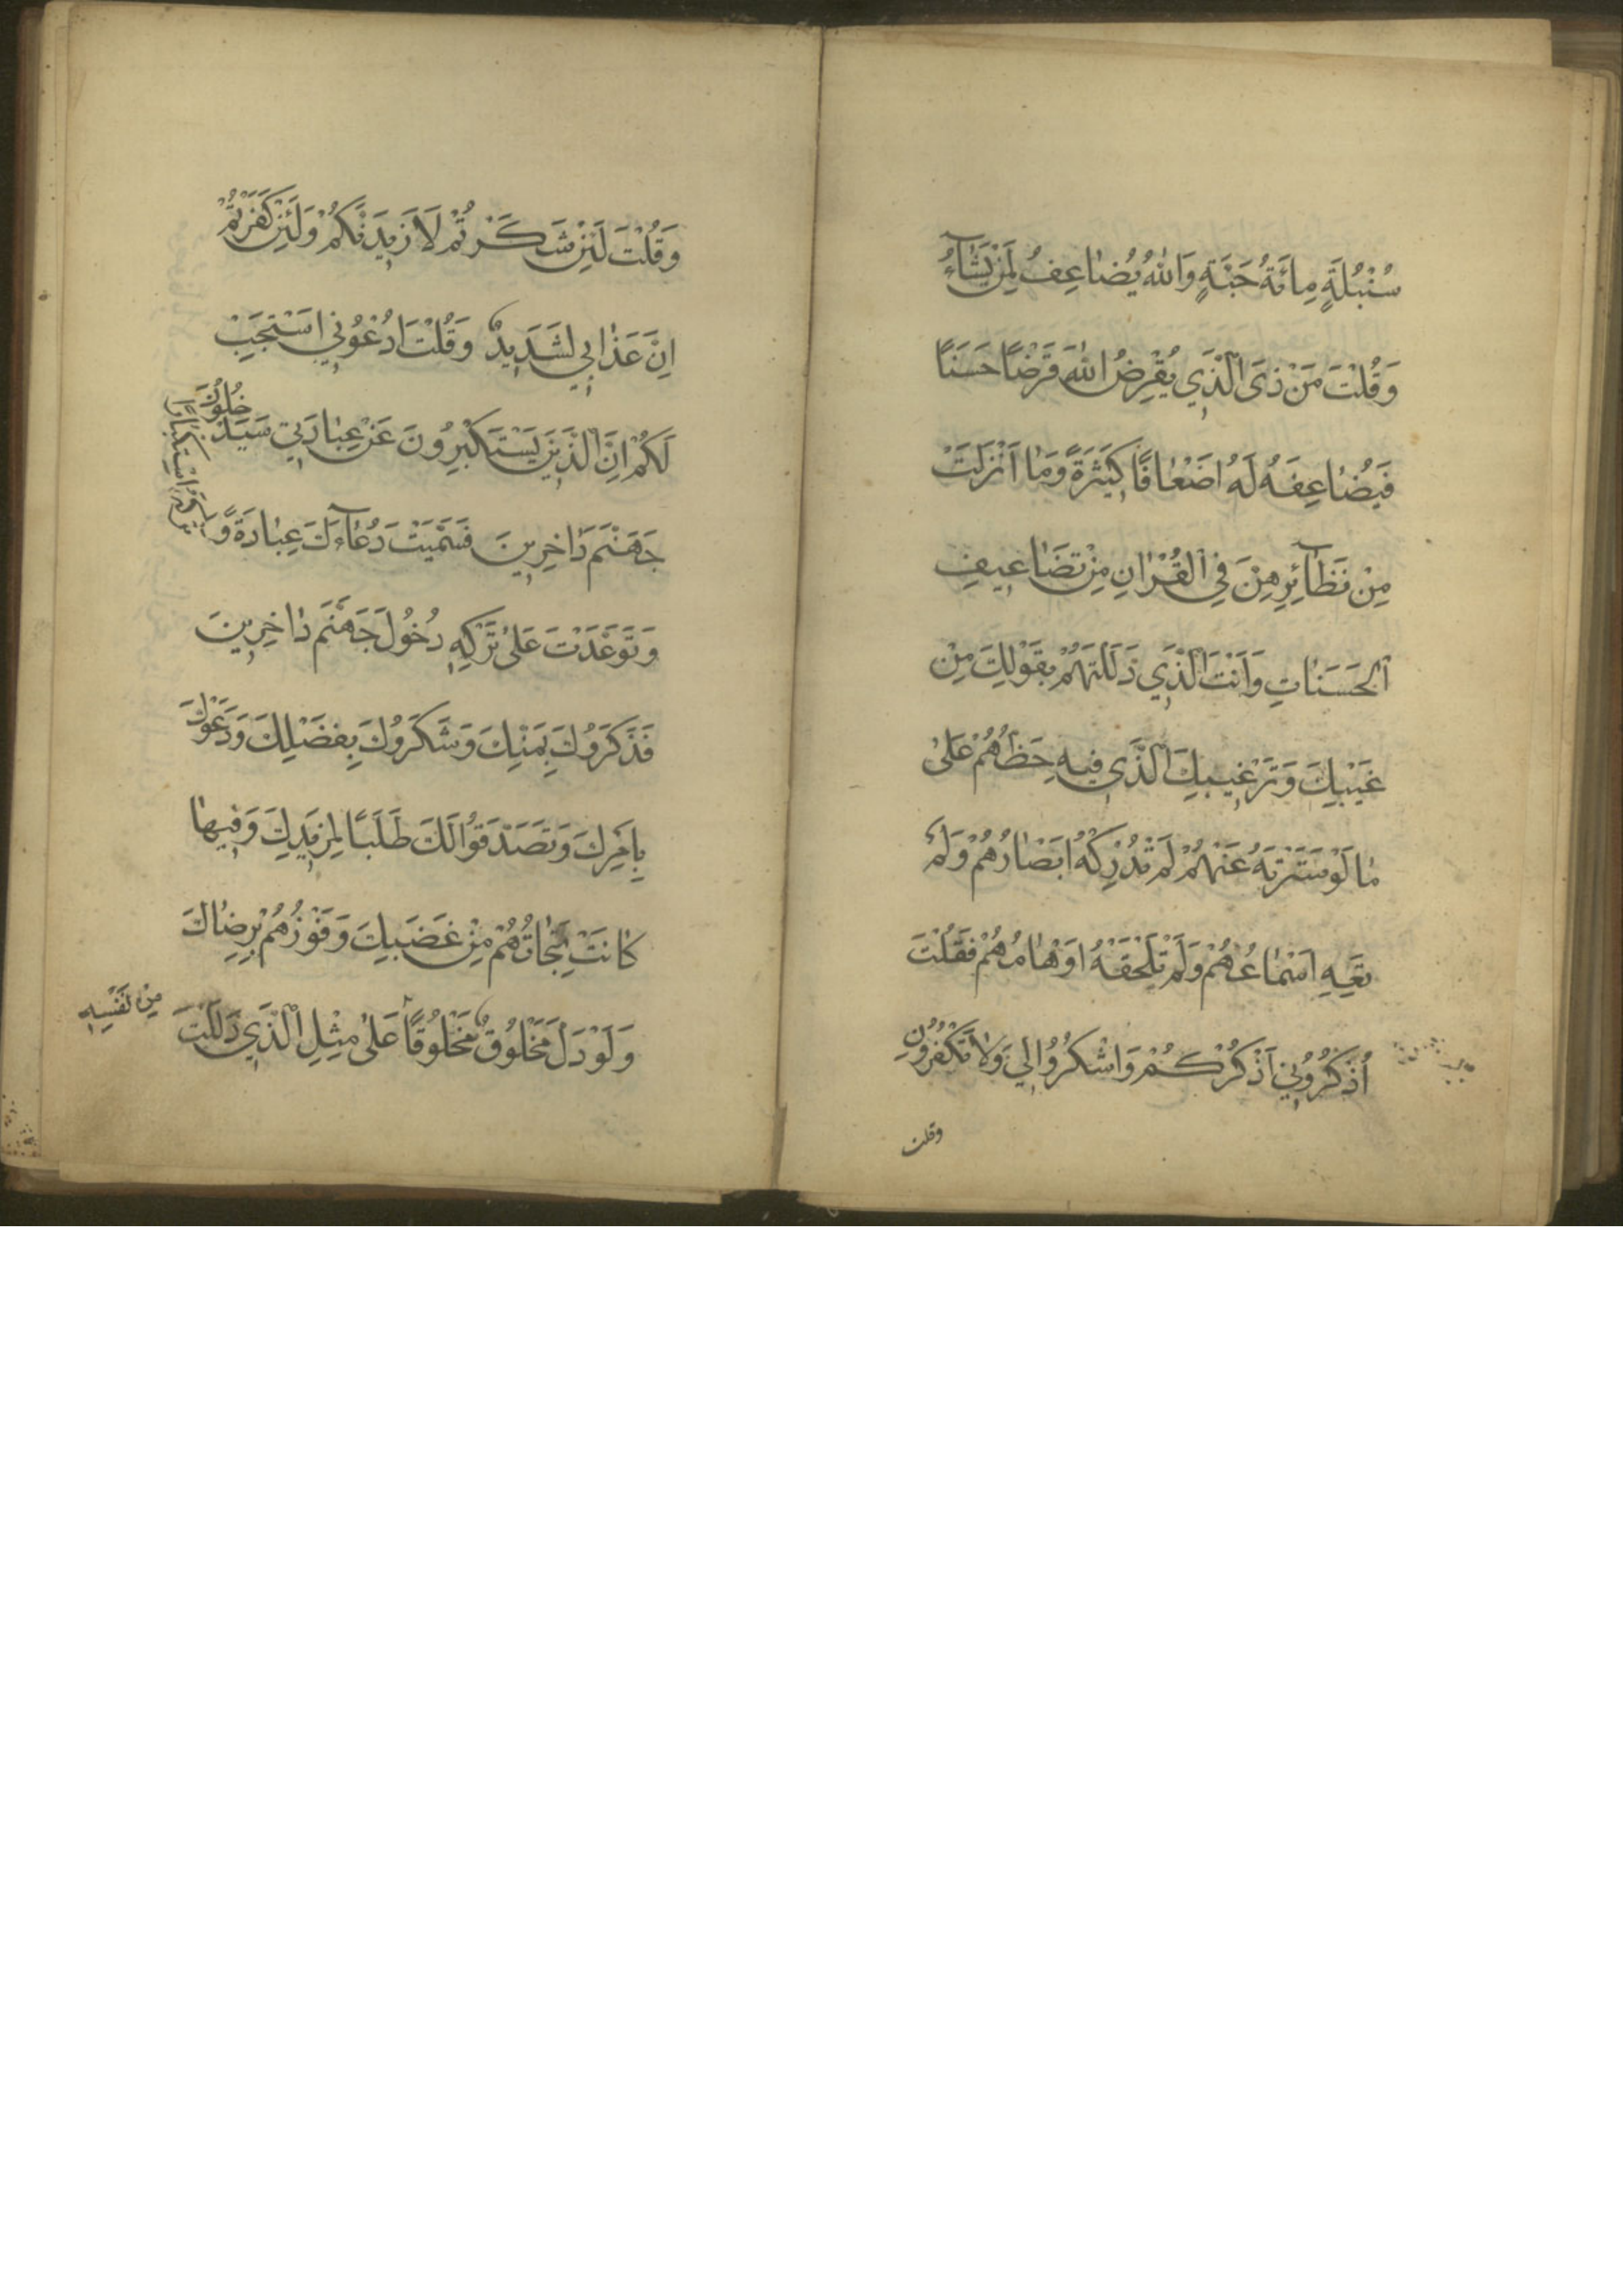 سُنْبُلَةٍ مِائَةُ حَبَّةٍ وَاللهُ يُضَاعِفُ لِمَنْ يَشَآءُ
وَقُلْتَ مَنْ ذَى الَّذِي يُقْرِضُ اللهَ قَرْضًا حَسَنًا
فَيُضَاعِفَهُ لَهُ اَضْعَافًا كَثِيرَةً وَمَا اَنْزَلْتَ
مِنْ نَظَآئِرِهِنَّ فِي الْقُرْانِ مِنْ تَضَاعِيفِ
الْحَسَنَاتِ وَاَنْتَ الَّذِي دَلَلْتَهُمْ بِقَوْلِكَ مِنْ
غَيْبِكَ وَتَرْغِيبِكَ الَّذِي فِيهِ حَظُّهُمْ عَلَى
مَا لَوْ سَتَرْتَهُ عَنْهُمْ لَمْ تُدْرِكْهُ اَبْصَارُهُمْ وَلَمْ
تَعِهِ اَسْمَاعُهُمْ وَلَمْ تَلْحَقْهُ اَوْهَامُهُمْ فَقُلْتَ
اُذْكُرُونِي اَذْكُرْكُمْ وَاشْكُرُوا لِي وَلَا تَكْفُرُونِ
وقلت
وَقُلْتَ لَئِنْ شَكَرْتُمْ لَاَزِيدَنَّكُمْ وَلَئِنْ كَفَرْتُمْ
اِنَّ عَذَابِي لَشَدِيدٌ وَقُلْتَ ادْعُونِي اَسْتَجِبْ
لَكُمْ اِنَّ الَّذِينَ يَسْتَكْبِرُونَ عَنْ عِبَادَتِي سَيَدْخُلُونَ
جَهَنَّمَ دَاخِرِينَ فَسَمَّيْتَ دُعَآءَكَ عِبَادَةً وَّ تَرْكَهُ اسْتِكْبَارًا
وَتَوَعَّدْتَ عَلَى تَرْكِهِ دُخُولَ جَهَنَّمَ دَاخِرِينَ
فَذَكَرُوكَ بِمَنِّكَ وَشَكَرُوكَ بِفَضْلِكَ وَدَعَوْكَ
بِاَمْرِكَ وَتَصَدَّقُوا لَكَ طَلَبًا لِمَزِيدِكَ وَفِيهَا
كَانَتْ نَجَاتُهُمْ مِنْ غَضَبِكَ وَفَوْزُهُمْ بِرِضَاكَ
وَلَوْ دَلَّ مَخْلُوقٌ مَخْلُوقًا عَلَى مِثْلِ الَّذِي دَلَلْتَ
مِنْ نَفْسِهِ